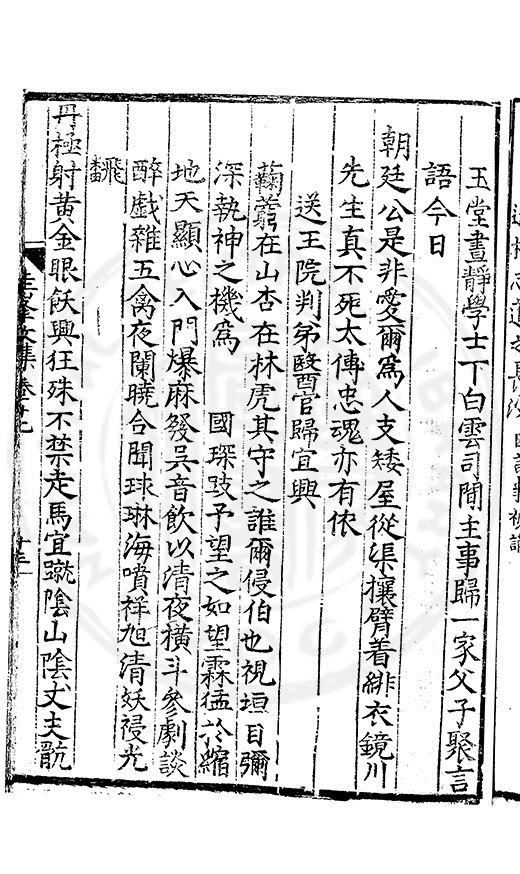 玉堂晝靜學士下白雲司閒主事歸一家父子聚言
語今日
朝廷公是非愛爾爲人支矮屋從渠攘臂着緋衣鏡川
先生真不死太傅忠魂亦有依
送王院判弟醫官歸宜興
鞠藭在山杏在林虎其守之誰爾侵伯也視垣目彌
深執神之機爲
國琛跂予望之如望霖猛於縮
地天顯心入門爆麻發吳音飲以清夜橫斗參劇談
醉戲雜五禽夜闌曉合聞球琳海噴祥旭清妖祲光
飛翻
丹極射黃金眼飫興狂殊不禁走馬宜蹴陰山陰丈夫骯